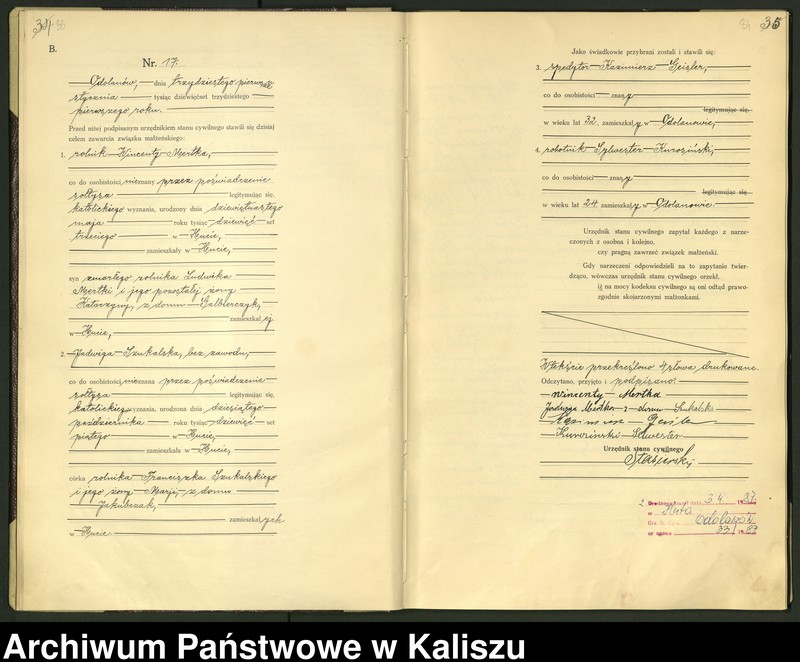 34
B.
Nr. 17.
Odolanów, dnia trzydziestego pierwszego
stycznia tysiąc dziewięćset trzydziestego
pierwszego roku.
Przed niżej podpisanym urzędnikiem stanu cywilnego stawili się dzisiaj
celem zawarcia związku małżeńskiego:
1. rolnik Wincenty Mertka,
co do osobistości nieznany przez poświadczenie
sołtysa legitymując się.
katolickiego wyznania, urodzony dnia dziewiętnastego
maja roku tysiąc dziewięć set
trzeciego w Hucie,
zamieszkały w Hucie,
syn zmarłego rolnika Ludwika
Mertki i jego pozostałej żony
Katarzyny, z domu Galbierczyk,
zamieszkałej
w Hucie,
2. Jadwiga Szukalska, bez zawodu,
co do osobistości nieznana przez poświadczenie
sołtysa legitymując się.
katolickiego wyznania, urodzona dnia dziesiątego
października roku tysiąc dziewięć set
piątego w Hucie,
zamieszkała w Hucie,
córka rolnika Franciszka Szukalskiego
i jego żony Marji, z domu
Jakubczak,
zamieszkałych
w Hucie.
35
Jako świadkowie przybrani zostali i stawili się:
3. spedytor Kazimierz Geisler,
co do osobistości znany
legitymując się.
w wieku lat 32 zamieszkały w Odolanowie,
4. robotnik Sylwester Kurosiński,
co do osobistości znany
legitymując się.
w wieku lat 24 zamieszkały w Odolanowie.
Urzędnik stanu cywilnego zapytał każdego z narze-
czonych z osobna i kolejno,
czy pragną zawrzeć związek małżeński.
Gdy narzeczeni odpowiedzieli na to zapytanie twier-
dząco, wówczas urzędnik stanu cywilnego orzekł,
iż na mocy kodeksu cywilnego są oni odtąd prawo-
zgodnie skojarzonymi małżonkami.
W tekście przekreślono 4 słowa drukowane.
Odczytano, przyjęto i podpisano:
Wincenty Mertka
Jadwiga Mertka z domu Szukalska
Kazimierz Geisler
Kurosinski Sylwester
Urzędnik stanu cywilnego
2
w Huta
Odolanów
Archiwum Państwowe w Kaliszu